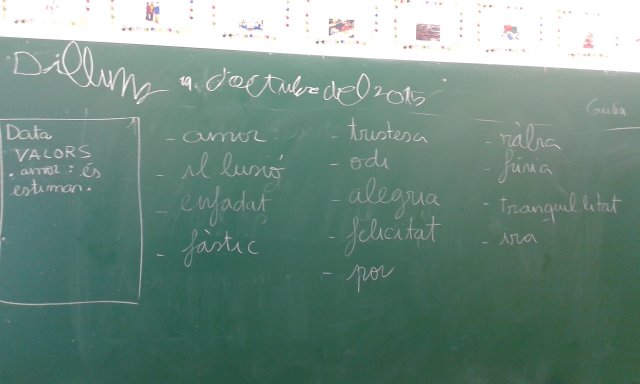 Dilluns 19 d'octubre del 2015
Data
VALORS
. amor : és
estimar.
- amor
- il·lusió
- enfadat
- fàstic
- tristesa
- odi
- alegria
- felicitat
- por
- ràbia
- fúria
- tranquil·litat
- ira